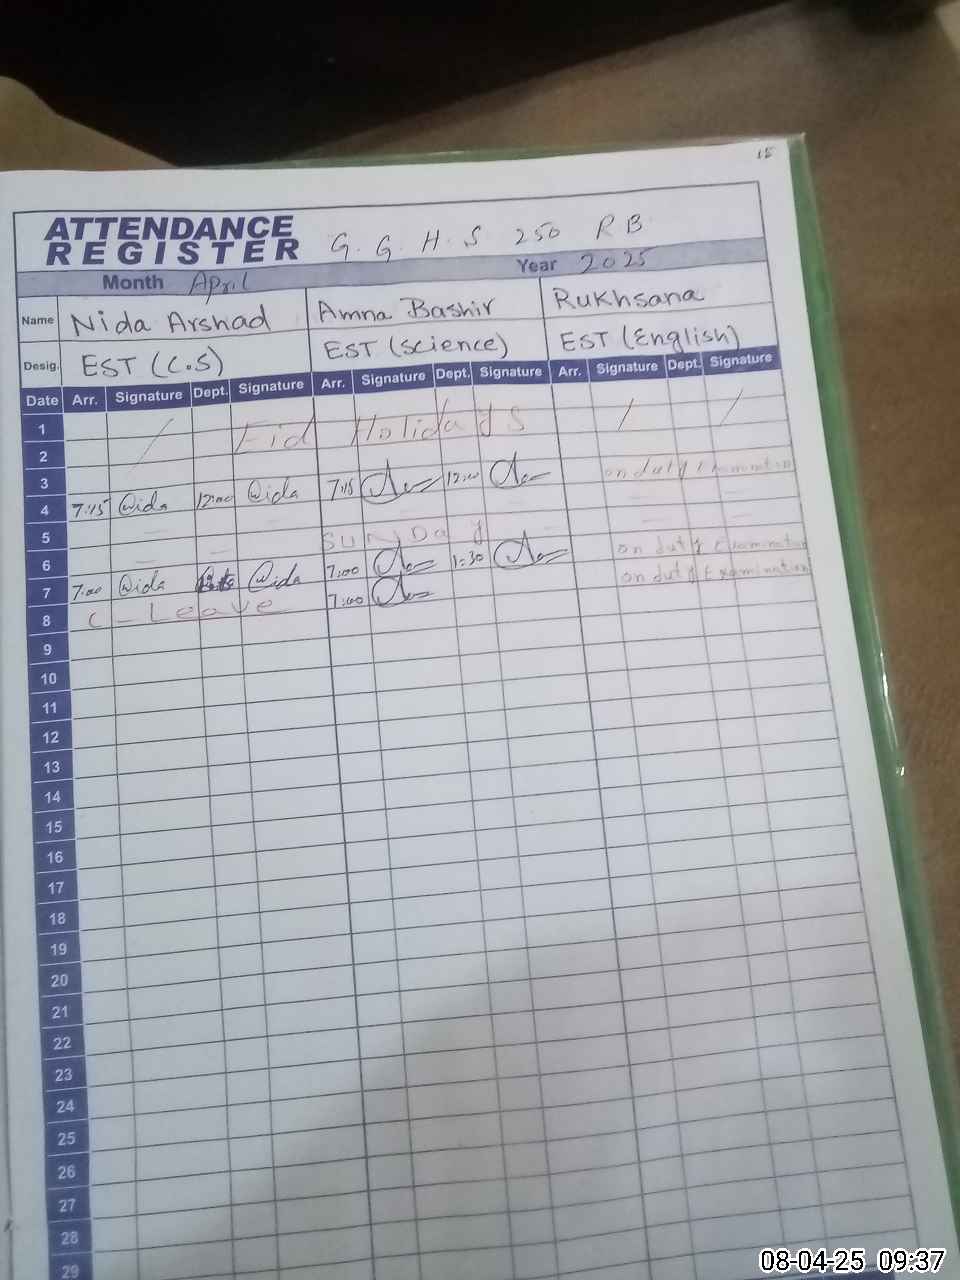 15
ATTENDANCE REGISTER G.G.H.S 250 RB
Month April Year 2025
Name Nida Arshad Amna Bashir Rukhsana
Desig. EST (C.S) EST (Science) EST (English)
Date Arr. Signature Dept. Signature Arr. Signature Dept. Signature Arr. Signature Dept. Signature
1 Eid Holidays
2
3 on duty Examination
4 7:15 Nida 12:00 Nida 7:15 12:00
5
6 SUNDay on duty Examination
7 7:00 Nida Nida 7:00 1:30 on duty Examination
8 C-Leave 7:00
9
10
11
12
13
14
15
16
17
18
19
20
21
22
23
24
25
26
27
28
29
08-04-25 09:37